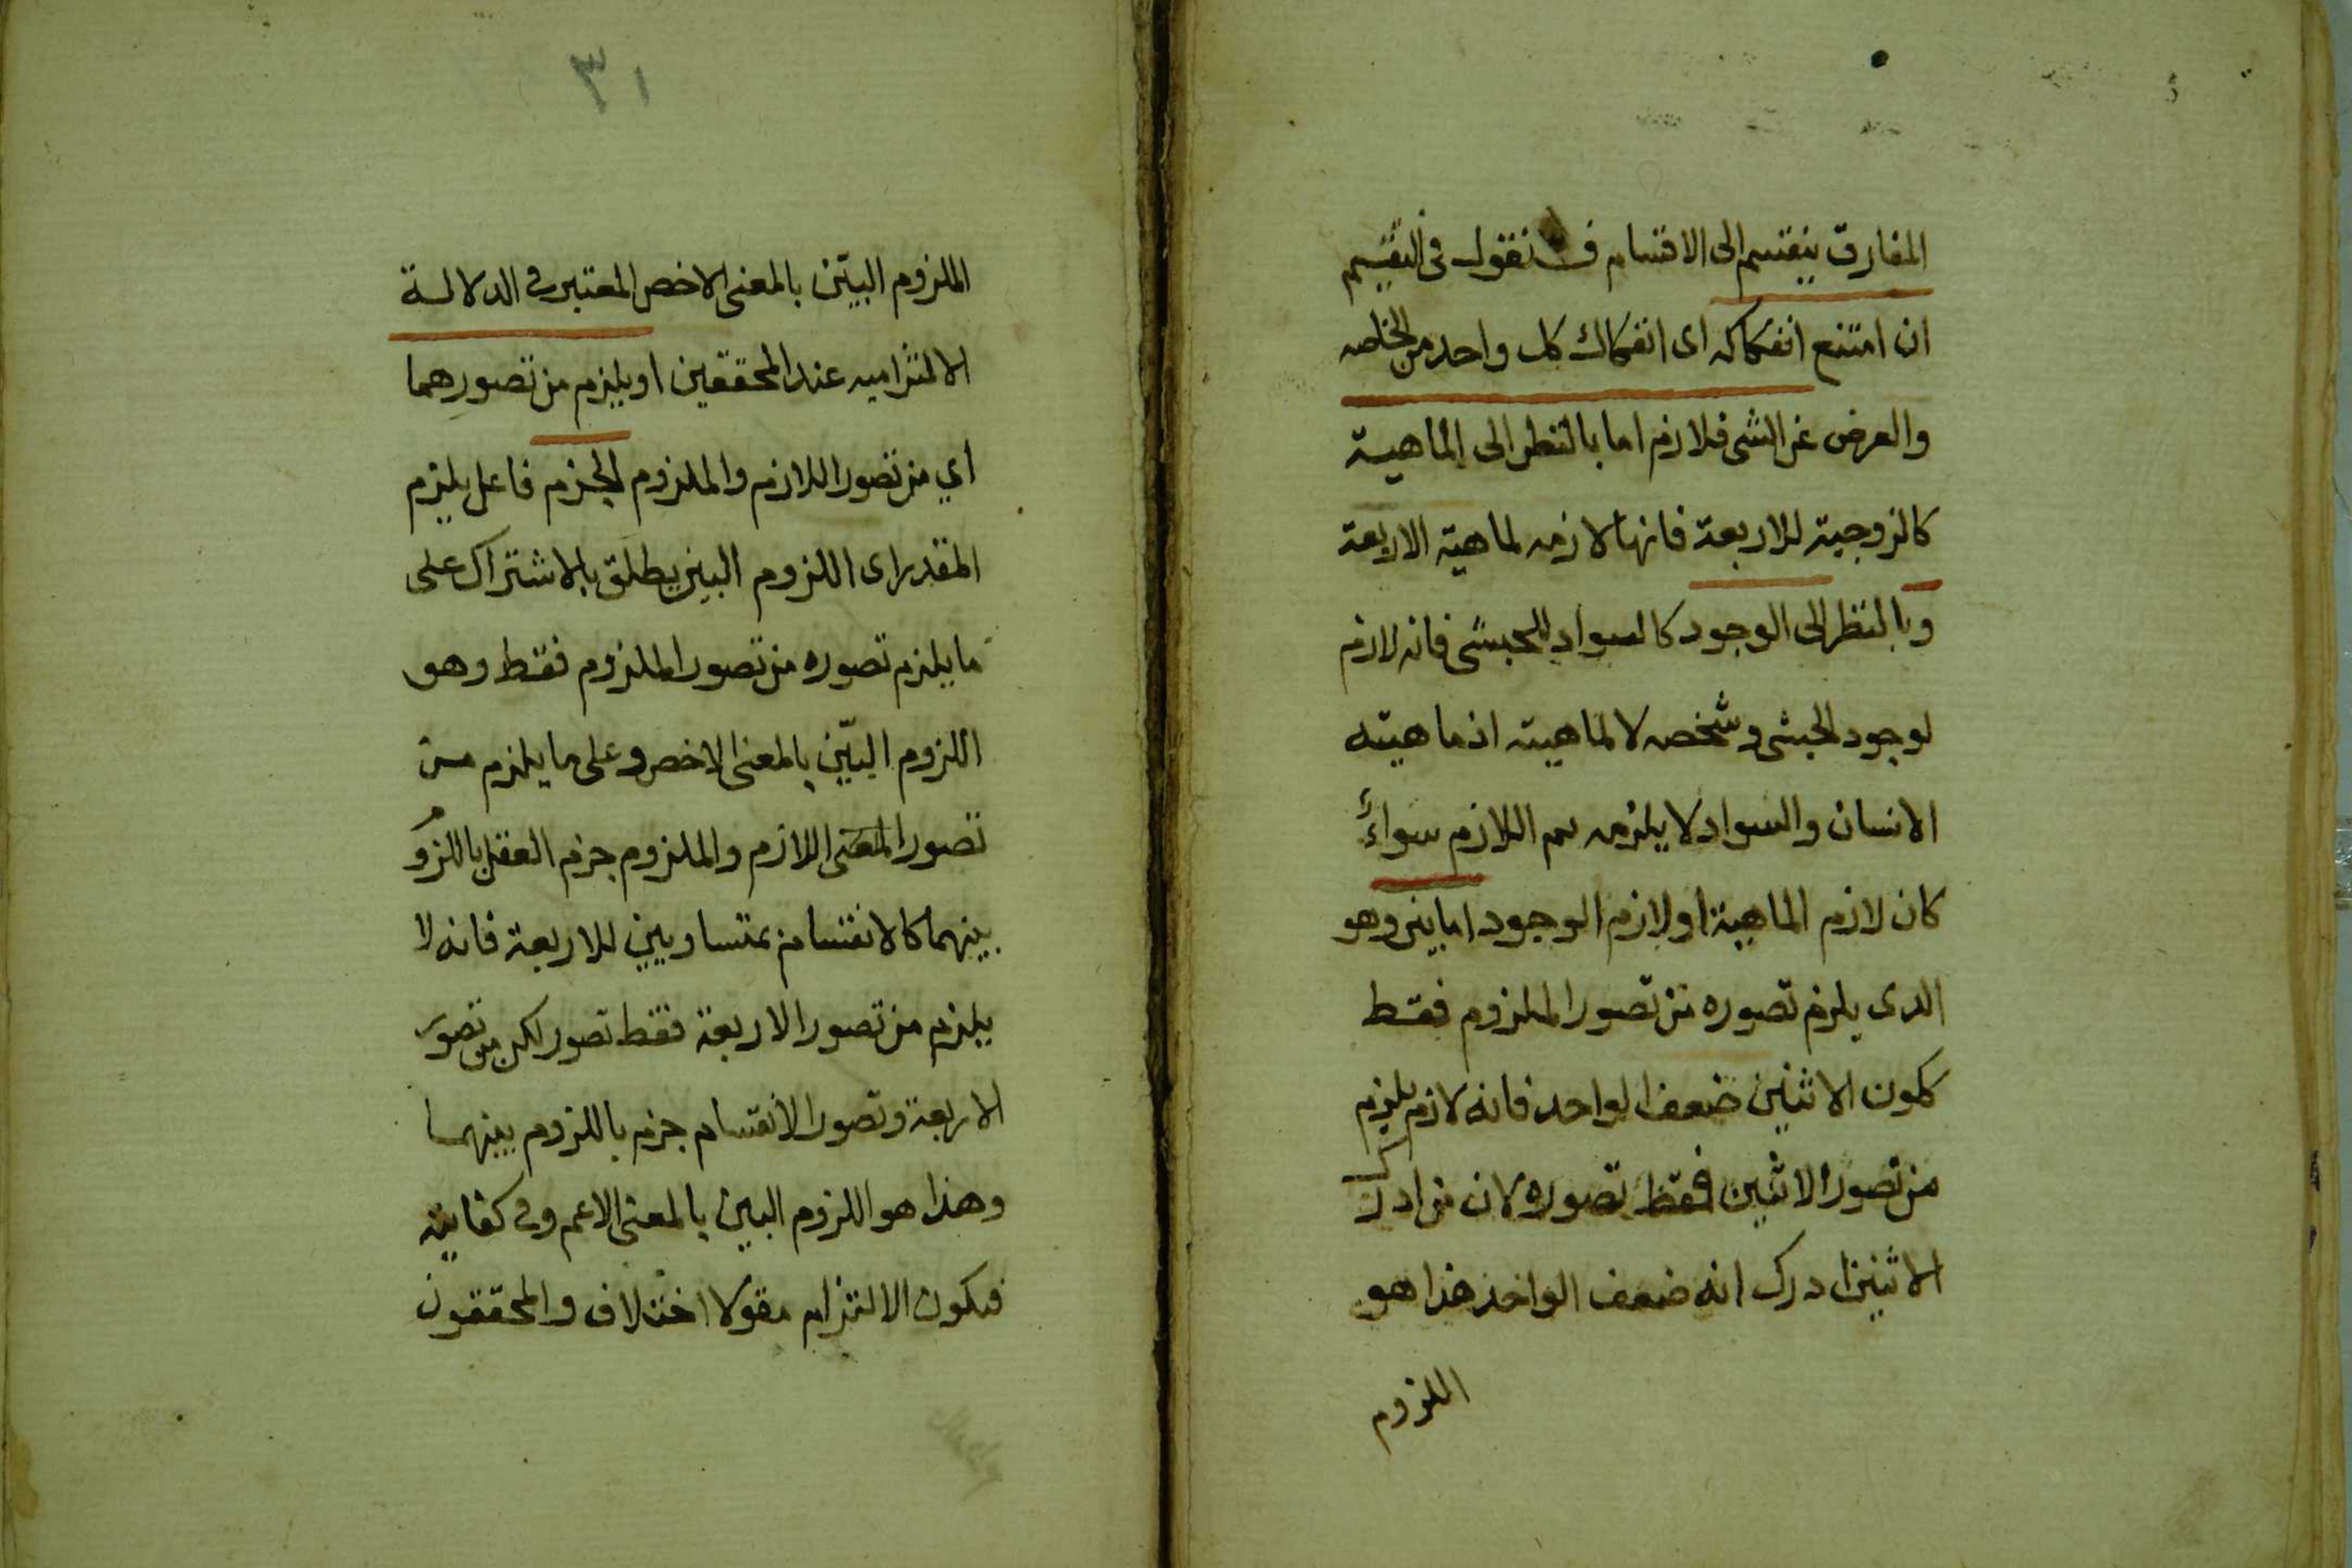 المفارق ينقسم الى الاقسام فـ نقول فى التقسيم
ان امتنع انفكاكه اى انفكاك كل واحد من الخاصه
والعرض عن الشى فلازم اما بالنظر الى الماهية
كالزوجية للاربعة فانها لازمه لماهية الاربعة
وبالنظر الى الوجود كالسواد للحبشى فانه لازم
لوجود الحبشى وشخصه لا لماهيته اذ ماهيته
الانسان والسواد لا يلزمه ثم اللازم سواءً
كان لازم الماهية او لازم الوجود اما بين وهو
الذى يلزم تصوره من تصور الملزوم فقط
ككون الاثنين ضعف الواحد فانه لازم يلزم
من تصور الاثنين فقط تصوره لان من ادرك
الاثنين ادرك انه ضعف الواحد هذا هو
اللزوم
٣١
الملزوم البيّن بالمعنى الاخص المعتبر فى الدلالة
الالتزاميه عند المحققين او يلزم من تصورهما
اي من تصور اللازم والملزوم الجزم فاعل يلزم
المقدر اى اللزوم البين يطلق بالاشتراك على
ما يلزم تصوره من تصور الملزوم فقط وهو
اللزوم البيّن بالمعنى الاخص وعلى ما يلزم من
تصور المعنى اللازم والملزوم جزم العقل باللزوم
بينهما كالانقسام بمتساويين للاربعة فانه لا
يلزم من تصور الاربعة فقط تصور لكن من تصور
الاربعة وتصور الانقسام جزم باللزوم بينهما
وهذا هو اللزوم البين بالمعنى الاعم وفى كفايته
فيكون الالتزام مقولا اختلاف والمحققون